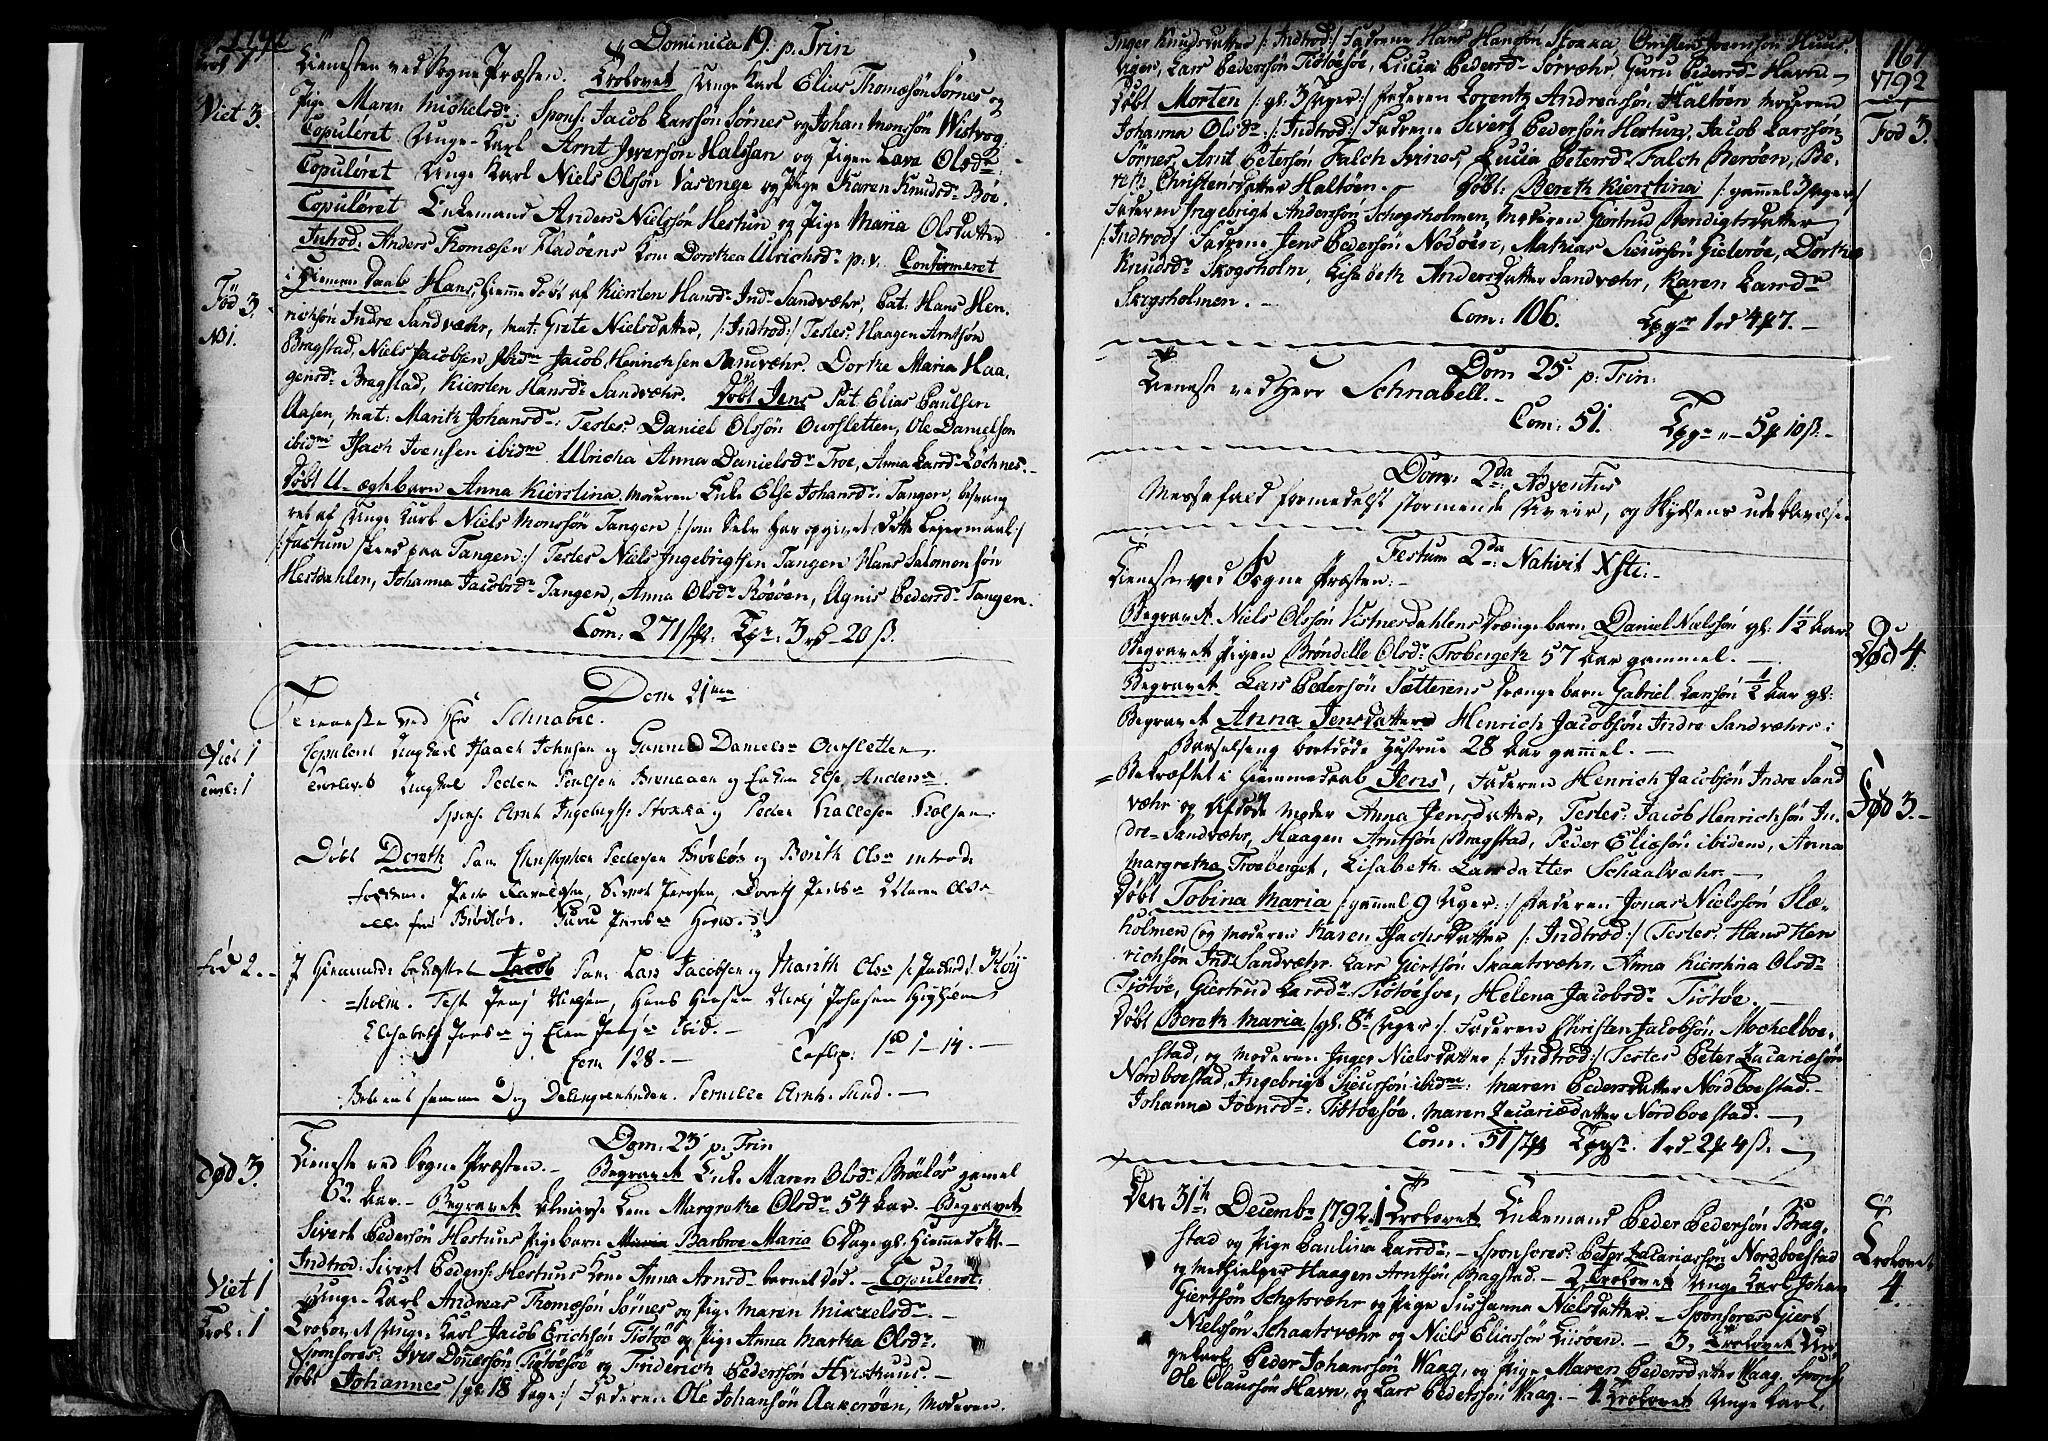 1792
Dominica 19. p. Trin
Trol 1
Tienesten ved Sogne Præsten. Trolovet Unge Karl Elias Thomæsøn Sørnes og
Viet 3.
Pige Maren Michelsdr Spons: Jacob Larssøn Sørnes og Johan Monssøn Wistvog.
Copuleret Unge-Karl Arnt Iversøn Halssan og Pigen Lava Olsdr:
Copuleret Unge Karl Niels Olssøn Vasenge og Pige Karen Knudsdr Bøe.
Copuleret Enkemand Anders Nielssøn Hestun og Pige Maria Olsdatter
Introd: Anders Thomæsen Fladøens Kone Dorthea Ulrichsdr p. v. Confirmeret
Fød 3.
i Hiemme Daab Hans, hiemmedøbt af Kiersten Hansdr Indr Sandværhr, Pat: Hans Hen-
richsøn Indre Sandværhr, mat: Grete Nielsdatter, /: Indtrod :/ Testes: Haagen Arntsøn
No 1.
Bragstad, Niels Jacobsen ibidm Jacob Heinrichsen Sandværhr. Dorthe Maria Haa-
gensdr Bragstad, Kiersten Hansdr Sandværhr. Døbt Jens Pat: Elias Paulsen
Aasen, mat: Marith Johansdr: Testes: Daniel Olssøn Oursletten, Ole Danielsøn
ibidm Isach Ivensen ibidm Ulricha Anna Danielsdr Troe, Anna Larsdr Løchnes.
Døbt U-ægte barn Anna Kierstina. Moderen Enke Else Johansdr: Tangen, besvang
ret af Unge Karl Niels Monssøn Tangen /: som Selv har opgivet dette Leyermaal :/
/: Factum skeed paa Tangen :/ Testes Niels Ingebrigtsen Tangen Hans Salomonsøn
Hestdahlen, Johanna Jacobsdr Tangen, Anna Olsdr Røøen, Agnis Pedersdr Tangen.
Com: 271 Tpgr: 3 rd - 20 ß.
Dom 21me
Tieneste ved Hr Schnabel.
Viet 1
Copuleret Ungkarl Isaach Johnsen og Gunnild Danielsdr Oursletten.
Trol: 1
Trolovet Ungkal Peder Poulsen og Enken Else Andersdr
Spons: Arnt Ingebrigts: Stokka og Peder Kallesen
Døbt Dorith Par: Christopher Pedersen og Berith Olsdr introd:
Fød 2.
I Hiemmedaab bekræftet Jacob Par: Lars Jacobsen og Marith Olsdr /: introd :/ Høy
=holm. Test: Jens Nielsen, Hans Hansen Niels Johnsen Høyholm
Elisabeth Jensdr og Ellen Jensdr Ibid. -
Com 128. - Tavlep: 1 rd 1 - 14. -
Belønt samme Dag Delinqventinden Pernille Arnts: Sund. -
Dom: 23 p: Trin
Død 3.
Tieneste ved Sogne Præsten. - Begravet Enke Maren Olsdr Brøeløs gamel
62 Aar. - Begravet Almisse Lem Margrethe Olsdr 54 Aar. Begravet
Sivert Pedersøn Hestuns Pigebarn Maria Barbroe Maria 6 Dage gl: Hiemmedøbt -
Introd: Sivert Peders: Hestuns Kone Anna Arnsdr barnet død. - Copuleret:
Viet 1
Unge-Karl Andreas Thomæsøn Sørnes og Pige Maren Mikkelsdr. -
Trol: 1
Trolovet Unge-Karl Jacob Erichsøn Tiøtøe og Pige Anna Martha Olsdr.
Sponsores: Iver Dønessøn Tiøtøesøe og Friderich Pedersøn Hvisthuus. -
Døbt Johannes /: gl: 18 Dage :/ Faderen Ole Johansøn Aakerøen, Moderen.
Inger Knudsdatter /: Indtrod :/ Fadrene Hans Hanssøn Stokka, Christen Joenssøn Huus-
164
vigen, Lars Pederssøn Tiøtøesøe, Lucia Pedersdr Sørværhr, Guru Pedersdr Havn -
1792
Døbt Morten /: gl: 3 Uger :/ Faderen Lorentz Andreassøn Haltøen Moderen
Fød 3.
Johanna Olsdr: /: Indtrod :/ Fadrene Sivert Pedersøn Hestun, Jacob Larssøn
Sørnes, Arnt Petersøn Falch Svines, Lucia Petersdr Falch Berøen, Be-
reth Christensdatter Haltøen. - Døbt: Bereth Kierstina /: gammel 3 Uger :/
Faderen Ingebrigt Anderssøn Schogsholmen, Moderen Giertrud Bendigtsdatter
/: Indtrod :/ Fadrene Jens Pederssøn Nødøen, Mathias Sieurssøn Gieterøe, Dorthe
Knudsdr Skogsholm, Lisbeth Andersdatter Sandværhr, Karen Larsdr
Skogsholmen. -
Com: 106. Tpgr 1 rd 4 7. -
Dom 25 p: Trin:
Tieneste ved Herr Schnabell. -
Com: 51. Tpgr " - 5 10 ß. -
Dom: 2da: Adventus
Messefald formedelst stormende Uveir, og Skydsens udeblivelse.
Festum 2da: Nativit Xsti: -
Tieneste ved Sogne Præsten: -
Begravet Niels Olssøn Vistnesdahlens Drængebarn Daniel Nielssøn gl: 1 1/2 Aar
Død 4
Begravet Pigen Brøndelle Olsdr Trobergeth 57 Aar gammel. -
Begravet Lars Pedersøn Sætterens Drænge barn Gabriel Larssøn 1/2 Aar gl:
Begravet Anna Jensdatter Henrich Jacobsøn Indre Sandværhr i
Barselseng bortdøde Hustrue 28 Aar gammel. -
Bekræftet i Hiemmedaab Jens, Faderen Henrich Jacobsøn Indre Sand
Fød 3. -
værhr og Afdøde Moder Anna Jensdatter, Testes: Jacob Henrichsøn In-
dre-Sandværhr, Haagen Arntsøn Bragstad, Peder Eliasøn ibidem, Anna
Margretha Troeberget, Lisabeth Larsdatter Schaalværhr -
Døbt Tobina Maria /: gammel 9 Uger: :/ Faderen Jonas Nielssøn Slæ-
holmen og Moderen Karen Isachsdatter /: Indtrod :/ Testes: Hans Hen
richsøn Ind: Sandværhr. Lars Giertsøn Skaatsværhr, Anna Kierstina Olsdr
Tiøtøe, Giertrud Larsdr Tiøtøesøe, Helena Jacobsdr Tiøtøe. -
Døbt Bereth Maria /: gl: 8te Uger :/ Faderen Christen Jacobsøn Mochelboe-
stad, og Moderen Inger Nielsdatter /: Indtrod :/ Testes Peter Zacariæsøn
Nordboestad, Ingebrigt Sieurssøn ibidm: Maren Pedersdatter Nordboestad. -
Johanna Joensdr: Tiøtøesøe, Maren Zacariædatter Nordboestad. -
Com. 51 Tpgr: 1 rd - 2 4 ß. -
Den 31te Decembr 1792. 1 Trolovet Enkemand Peder Pedersøn Brag-
stad og Pige Paulina Larsdr: - Sponsores: Peter Zachariassøn Nordboestad
Trolovet
4.
og Medhielper Haagen Arntsøn Bragstad. - 2 Trolovet Unge Karl Johan
Giertsøn Schotsværhr og Pige Sussanna Nielsdatter. - Sponsores Giert
Nielssøn Schaatsværhr og Niels Eliassøn Liisøen. - 3, Trolovet Un-
gekarl Peder Johanssøn Waag, og Pige Maren Pedersdatter Waag. Spons:
Ole Claussøn Havn, og Lars Pederssøn Waag. - 4 Trolovet Unge Karl.